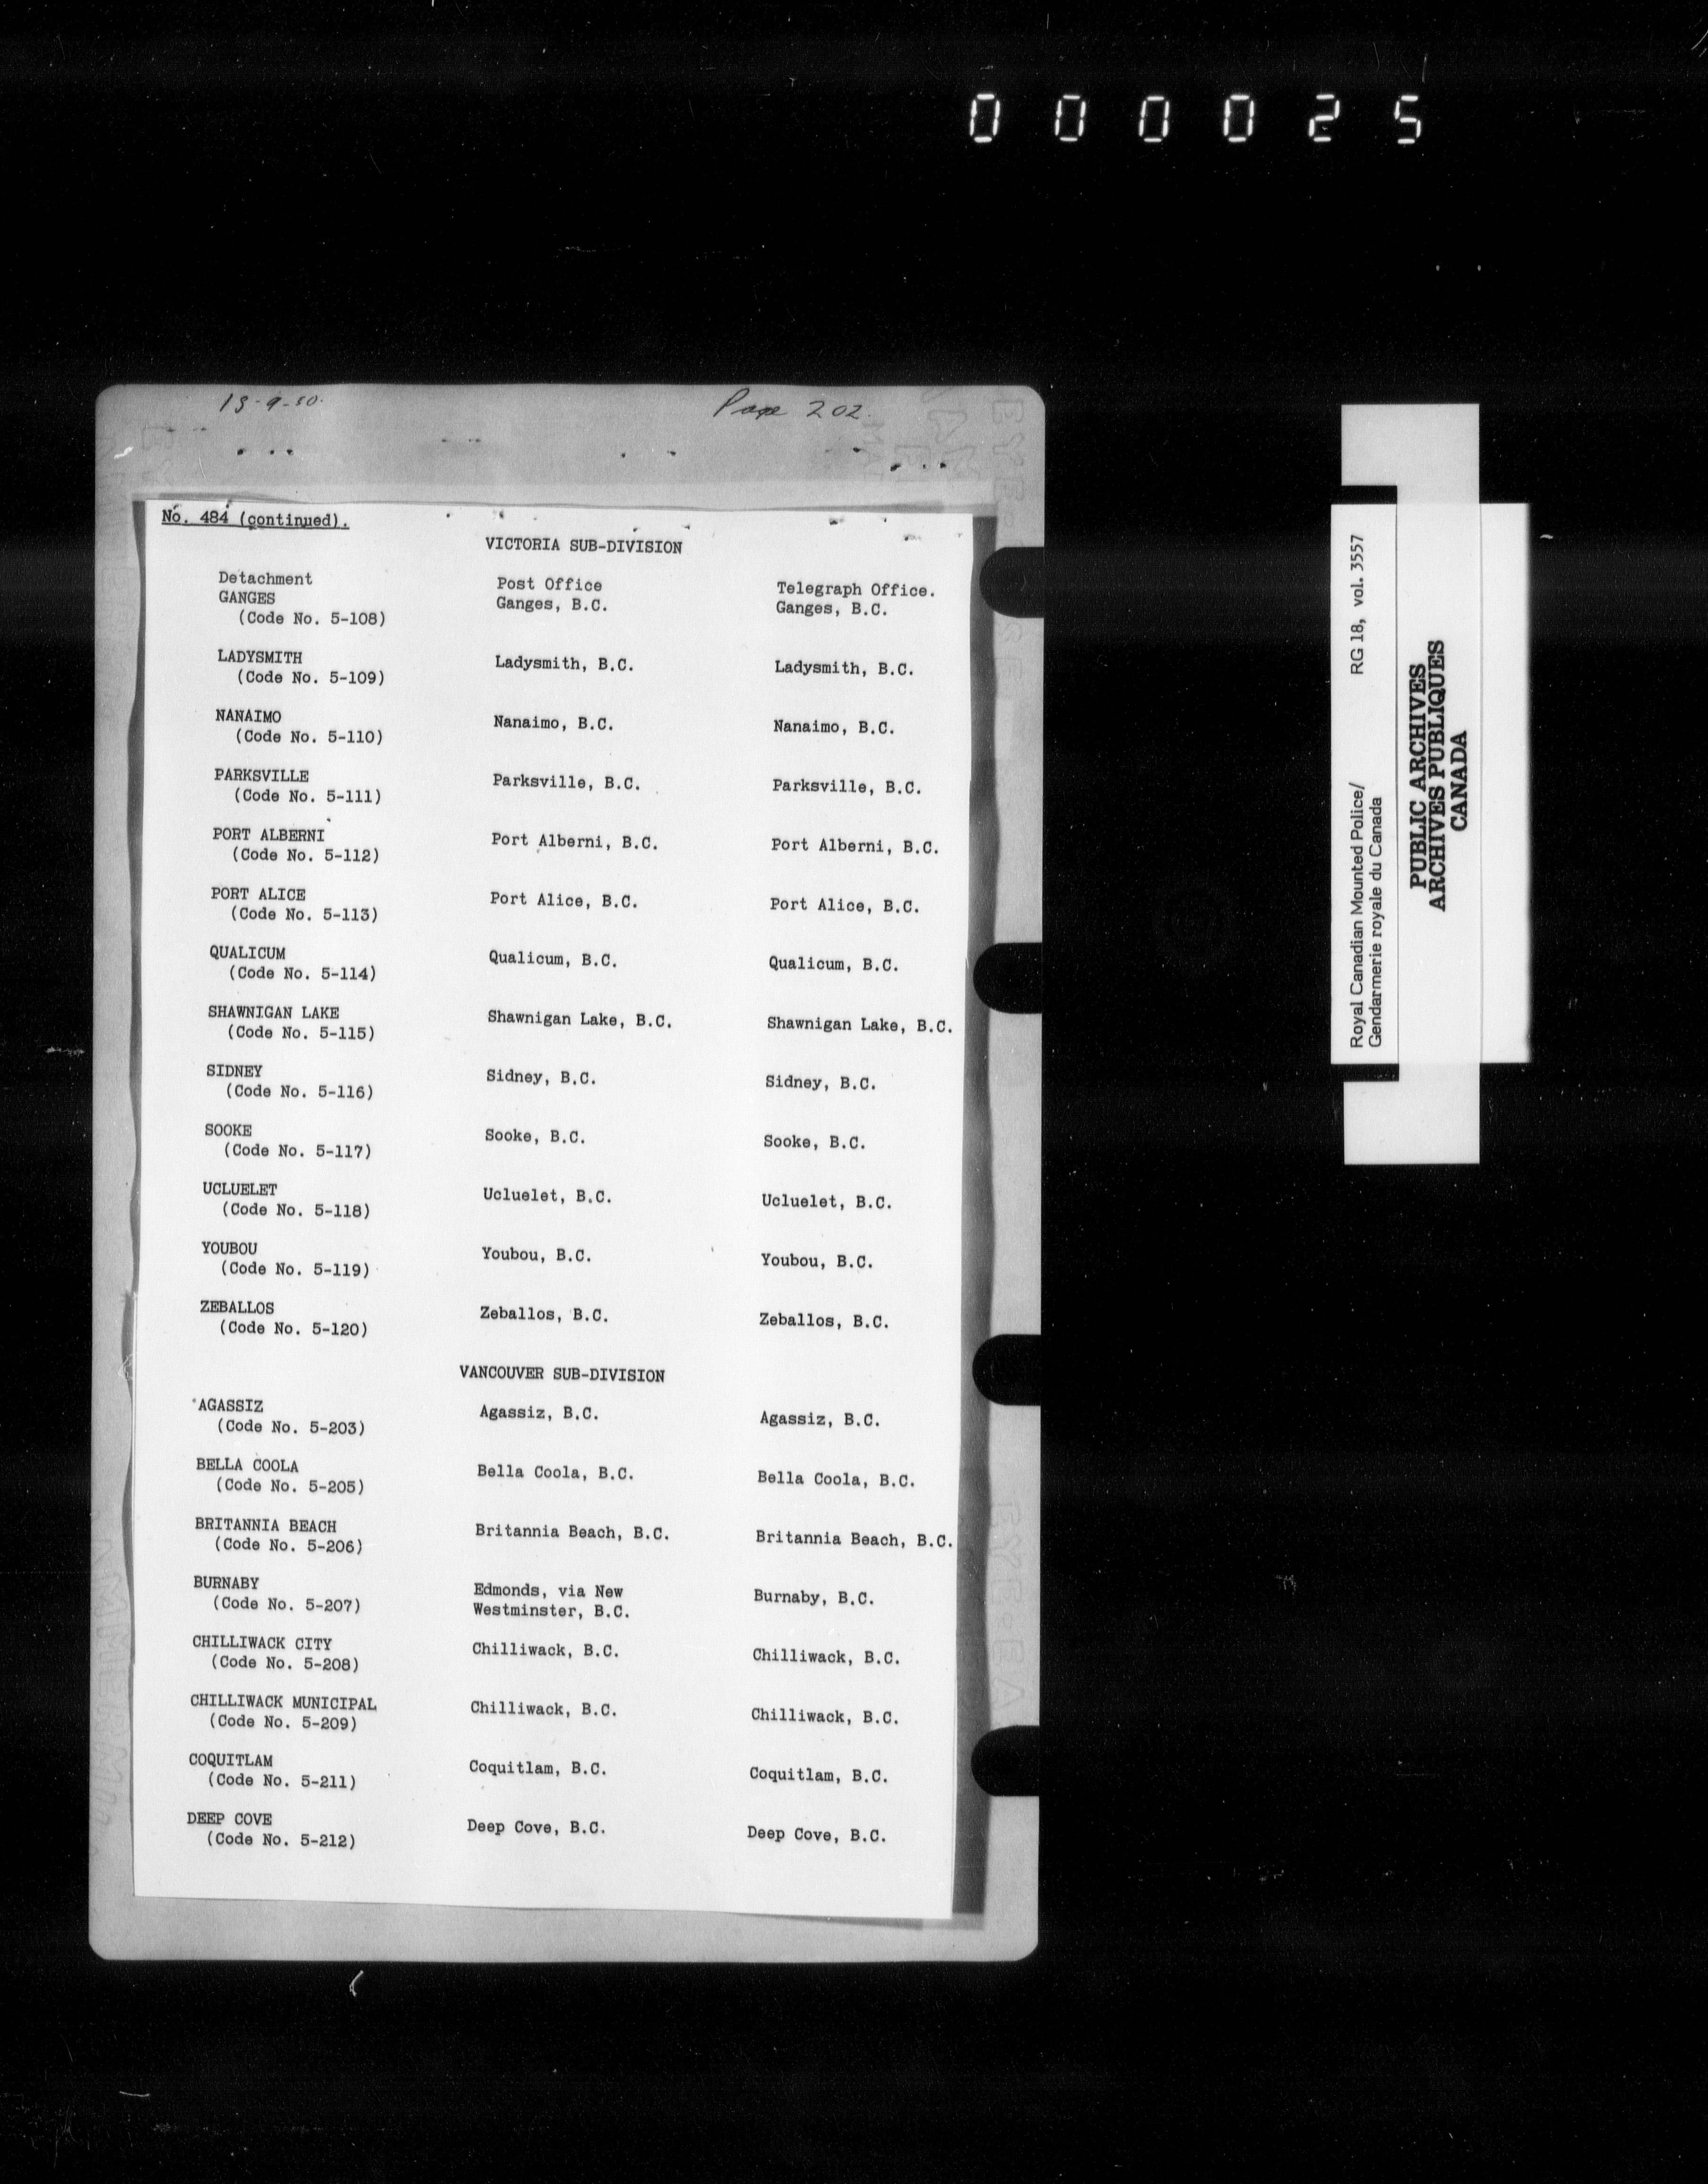 000025
13-9-50.
Page 202.
No. 484 (continued).
VICTORIA SUB-DIVISION
Detachment Post Office Telegraph Office.
GANGES Ganges, B.C. Ganges, B.C.
(Code No. 5-108)
LADYSMITH Ladysmith, B.C. Ladysmith, B.C.
(Code No. 5-109)
NANAIMO Nanaimo, B.C. Nanaimo, B.C.
(Code No. 5-110)
PARKSVILLE Parksville, B.C. Parksville, B.C.
(Code No. 5-111)
PORT ALBERNI Port Alberni, B.C. Port Alberni, B.C.
(Code No. 5-112)
PORT ALICE Port Alice, B.C. Port Alice, B.C.
(Code No. 5-113)
QUALICUM Qualicum, B.C. Qualicum, B.C.
(Code No. 5-114)
SHAWNIGAN LAKE Shawnigan Lake, B.C. Shawnigan Lake, B.C.
(Code No. 5-115)
SIDNEY Sidney, B.C. Sidney, B.C.
(Code No. 5-116)
SOOKE Sooke, B.C. Sooke, B.C.
(Code No. 5-117)
UCLUELET Ucluelet, B.C. Ucluelet, B.C.
(Code No. 5-118)
YOUBOU Youbou, B.C. Youbou, B.C.
(Code No. 5-119)
ZEBALLOS Zeballos, B.C. Zeballos, B.C.
(Code No. 5-120)
VANCOUVER SUB-DIVISION
AGASSIZ Agassiz, B.C. Agassiz, B.C.
(Code No. 5-203)
BELLA COOLA Bella Coola, B.C. Bella Coola, B.C.
(Code No. 5-205)
BRITANNIA BEACH Britannia Beach, B.C. Britannia Beach, B.C.
(Code No. 5-206)
BURNABY Edmonds, via New Burnaby, B.C.
(Code No. 5-207) Westminster, B.C.
CHILLIWACK CITY Chilliwack, B.C. Chilliwack, B.C.
(Code No. 5-208)
CHILLIWACK MUNICIPAL Chilliwack, B.C. Chilliwack, B.C.
(Code No. 5-209)
COQUITLAM Coquitlam, B.C. Coquitlam, B.C.
(Code No. 5-211)
DEEP COVE Deep Cove, B.C. Deep Cove, B.C.
(Code No. 5-212)
Royal Canadian Mounted Police/ RG 18, vol. 3557
Gendarmerie royale du Canada
PUBLIC ARCHIVES
ARCHIVES PUBLIQUES
CANADA